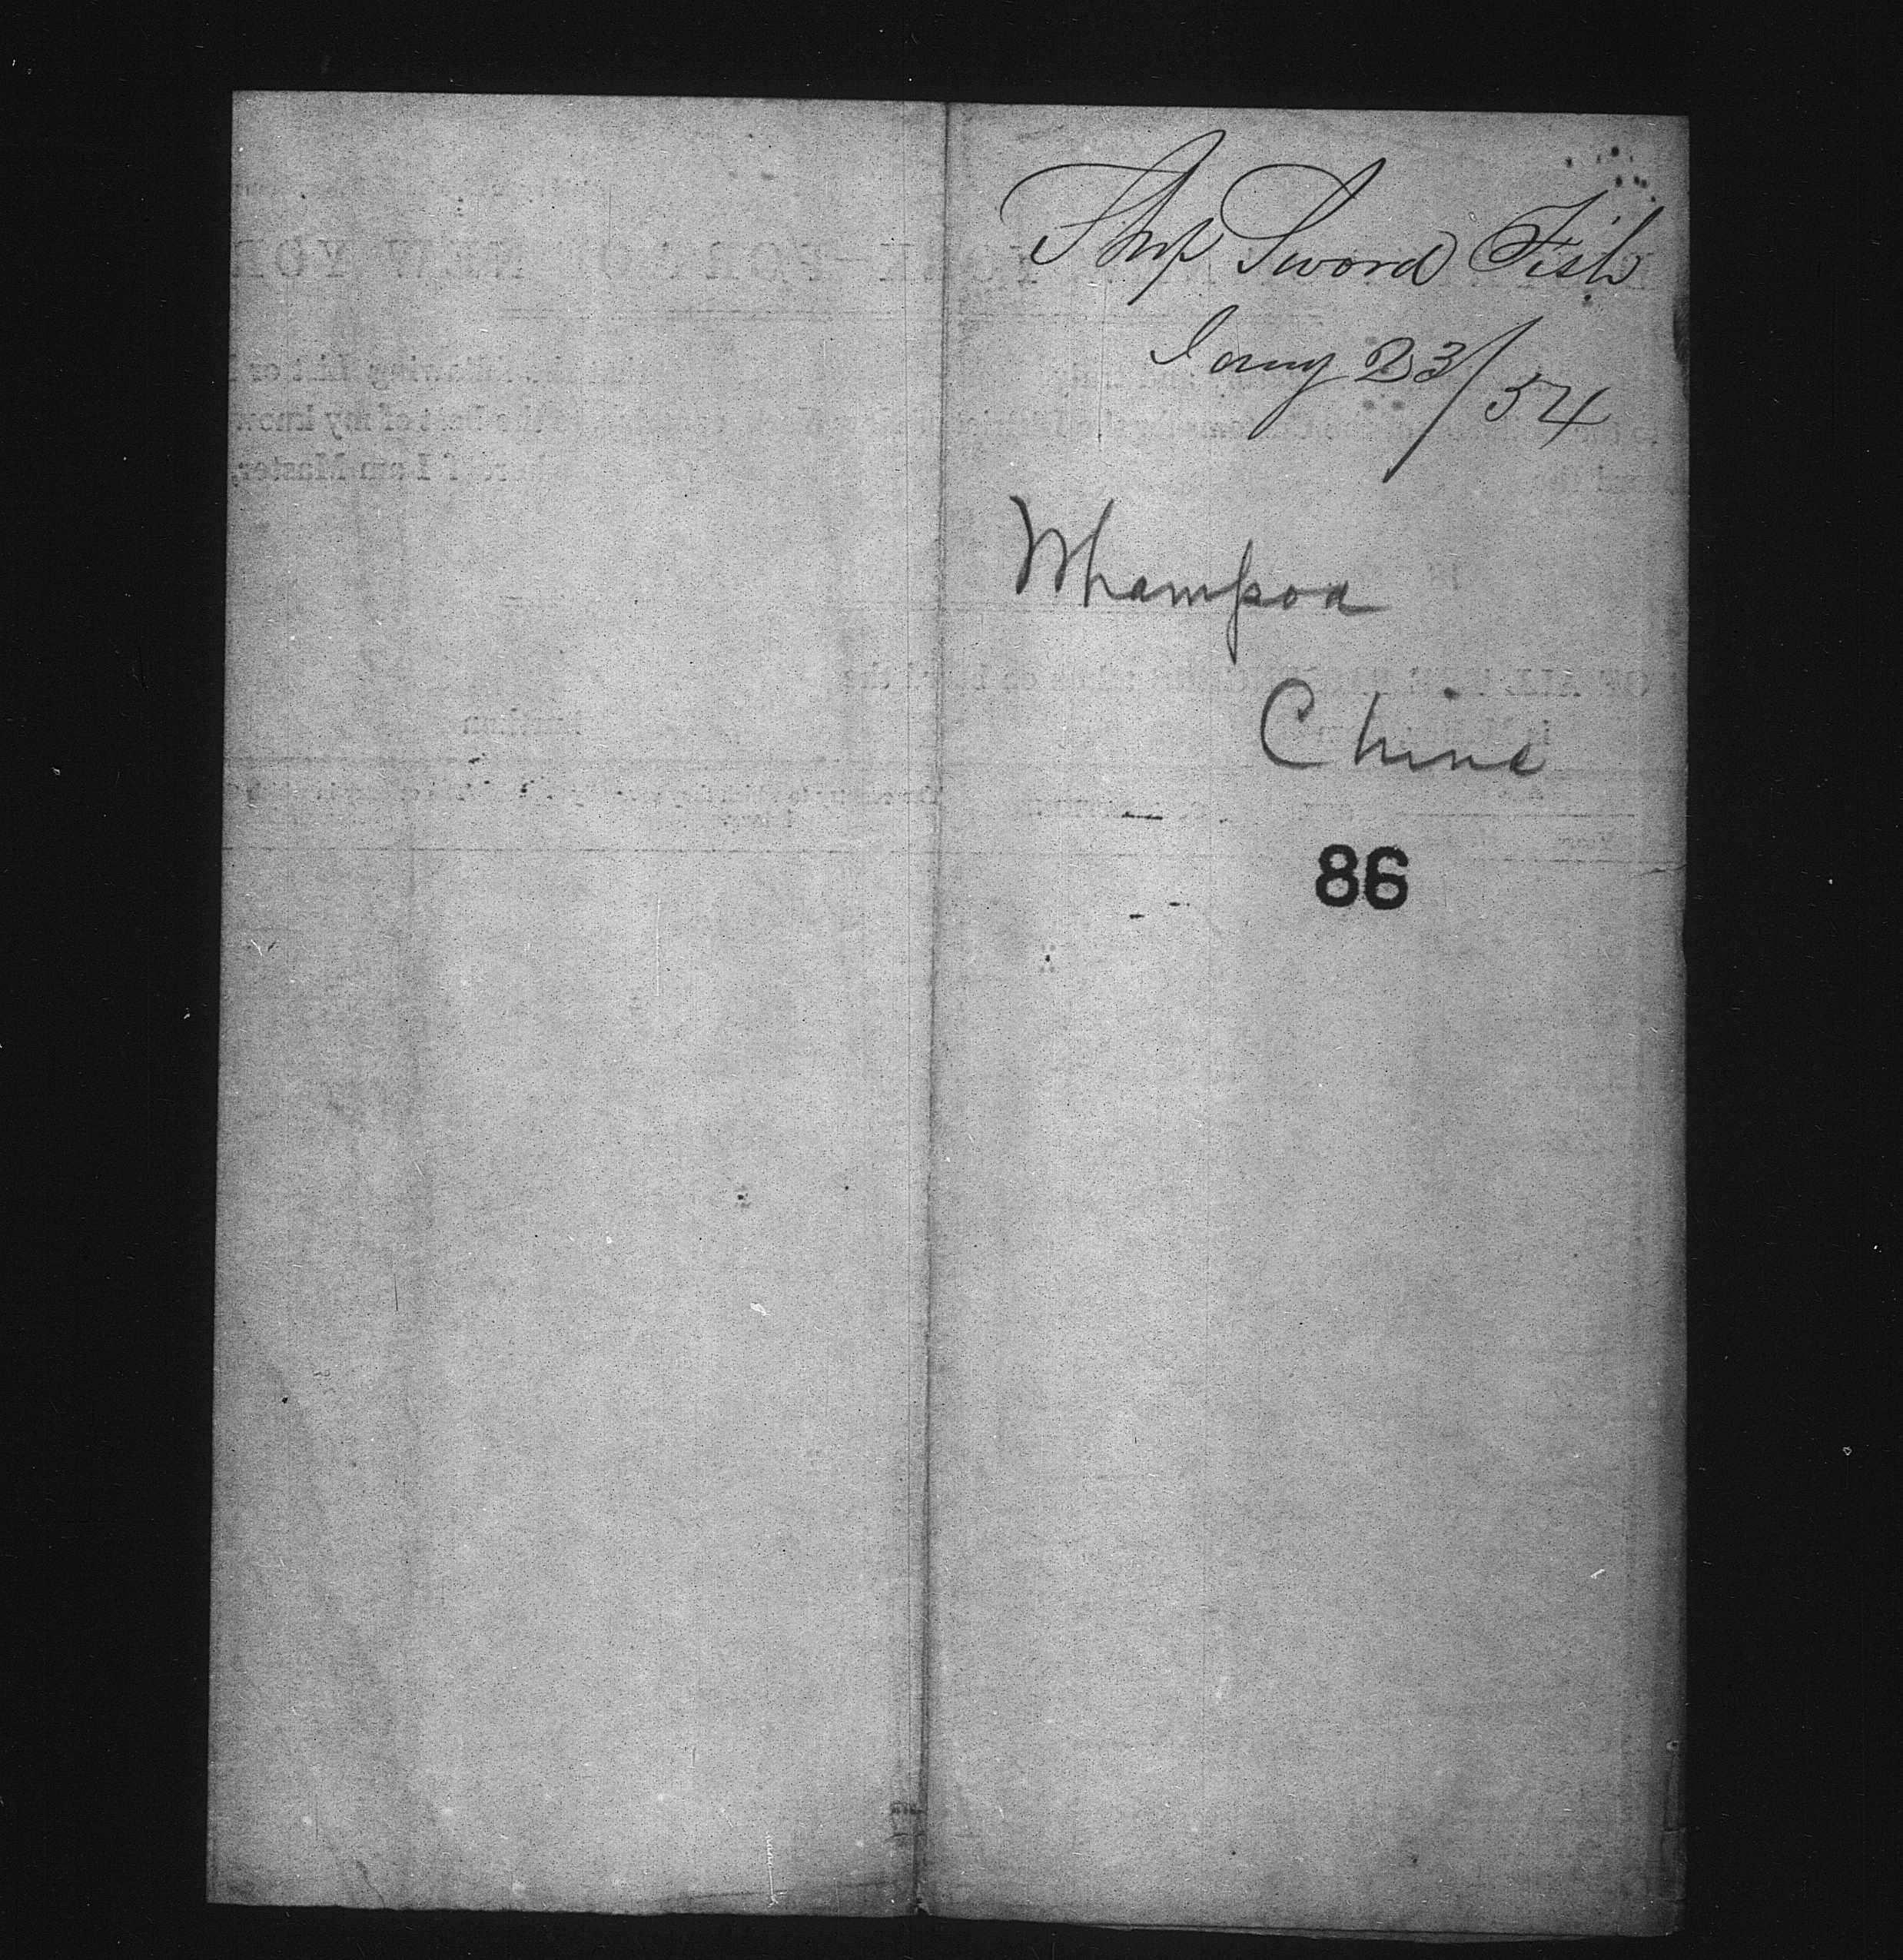 Ship Sword Fish
Jany 23/54
Whampoa
China
86